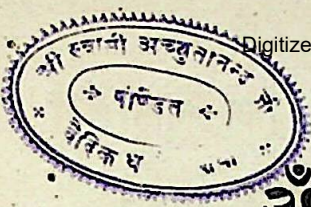 Digitize
श्री स्वामी अच्युतानन्द जी
पण्डित
वैदिक ध
ॐ